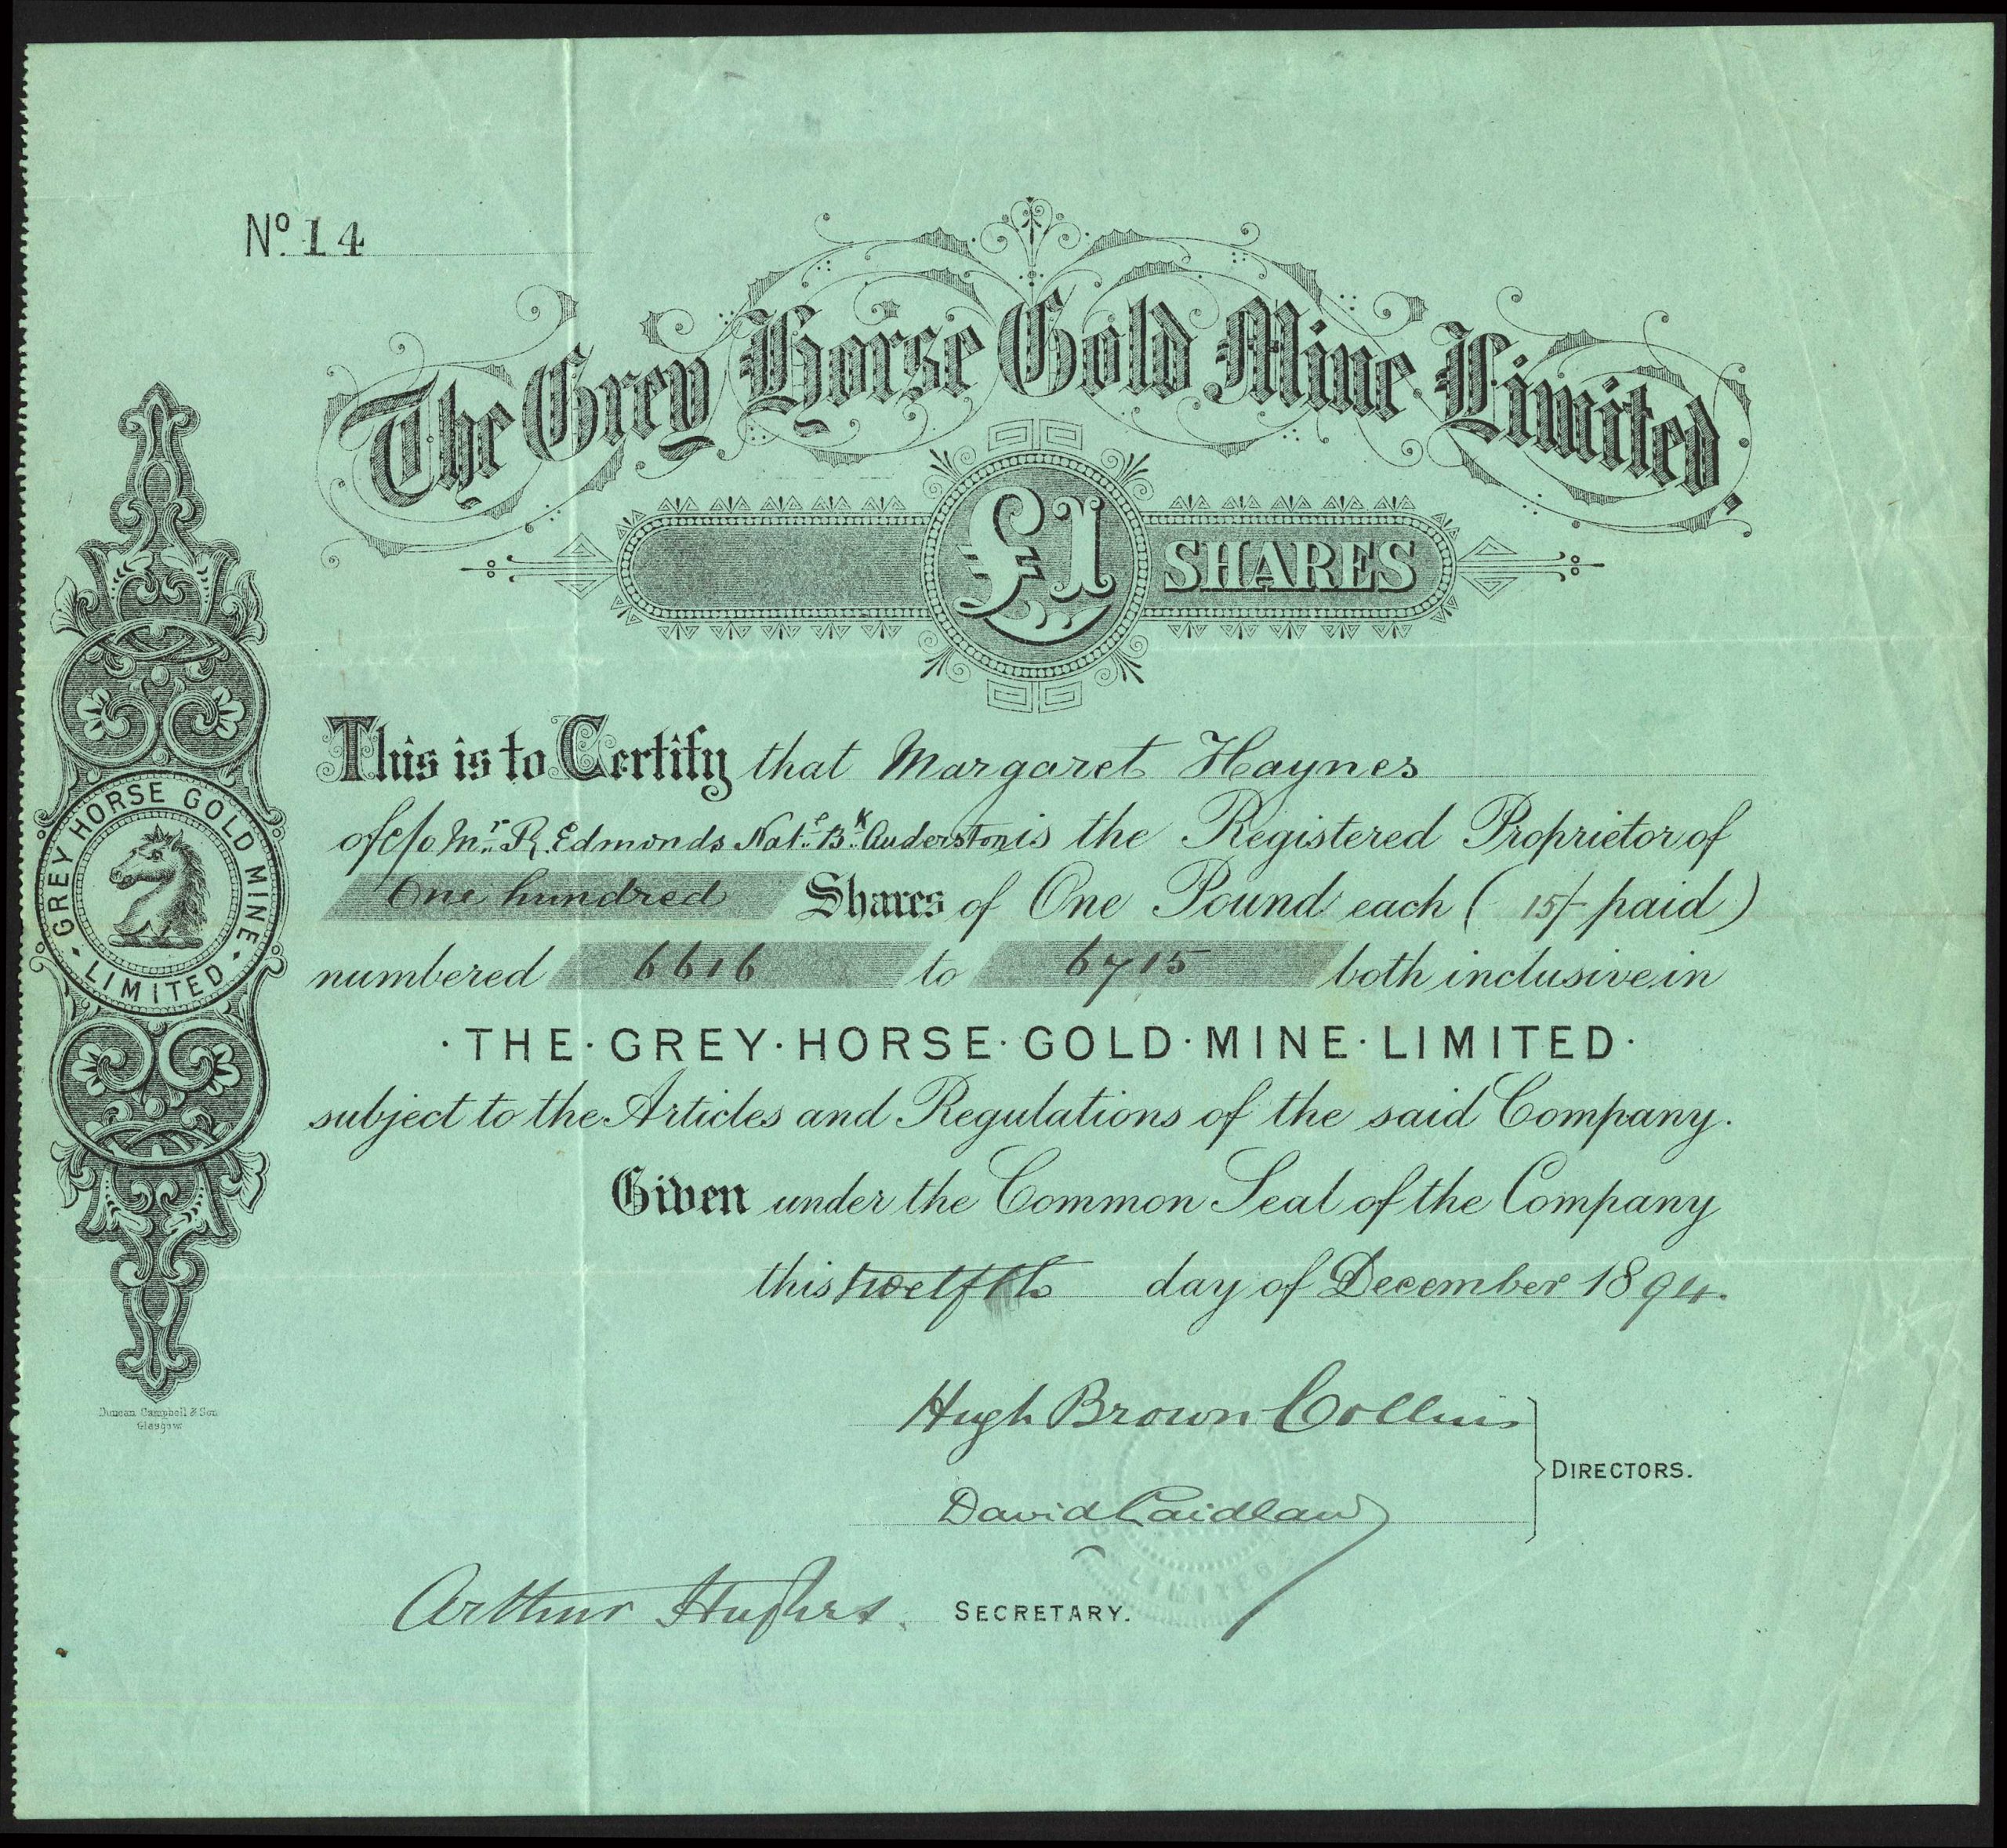 Nº 14
The Grey Horse Gold Mine Limited.
£1 SHARES
This is to Certify that Margaret Haynes
of c/o Mr. R. Edmonds Natl. Bk. Anderston is the Registered Proprietor of
One hundred Shares of One Pound each (15/- paid)
numbered 6616 to 6715 both inclusive in
·THE·GREY·HORSE·GOLD·MINE·LIMITED·
subject to the Articles and Regulations of the said Company.
Given under the Common Seal of the Company
this twelfth day of December 1894.
Hugh Brown Collins
David Laidlaw
DIRECTORS.
Arthur Hughes. SECRETARY.
GREY HORSE GOLD MINE
·LIMITED·
Duncan Campbell & Son
Glasgow
LIMITED